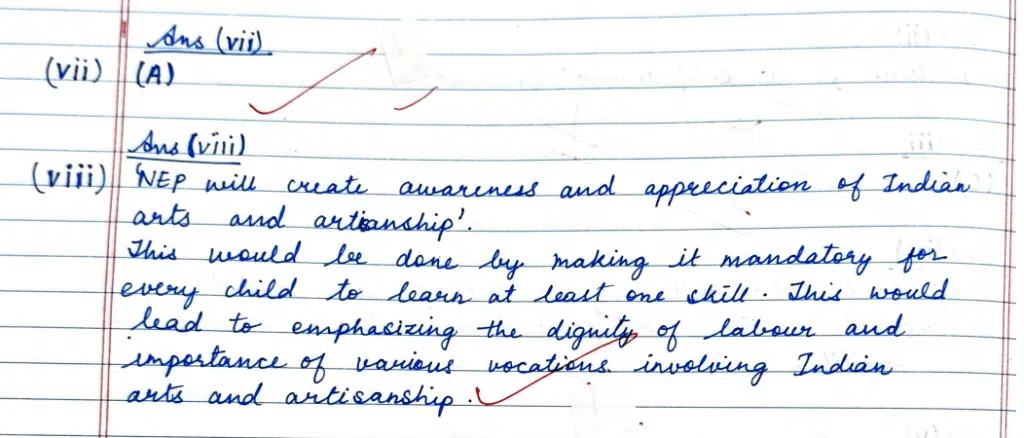 Ans (vii)
(vii) (A)
Ans (viii)
(viii) 'NEP will create awareness and appreciation of Indian
arts and artisanship'.
This would be done by making it mandatory for
every child to learn at least one skill. This would
lead to emphasizing the dignity of labour and
importance of various vocations involving Indian
arts and artisanship.